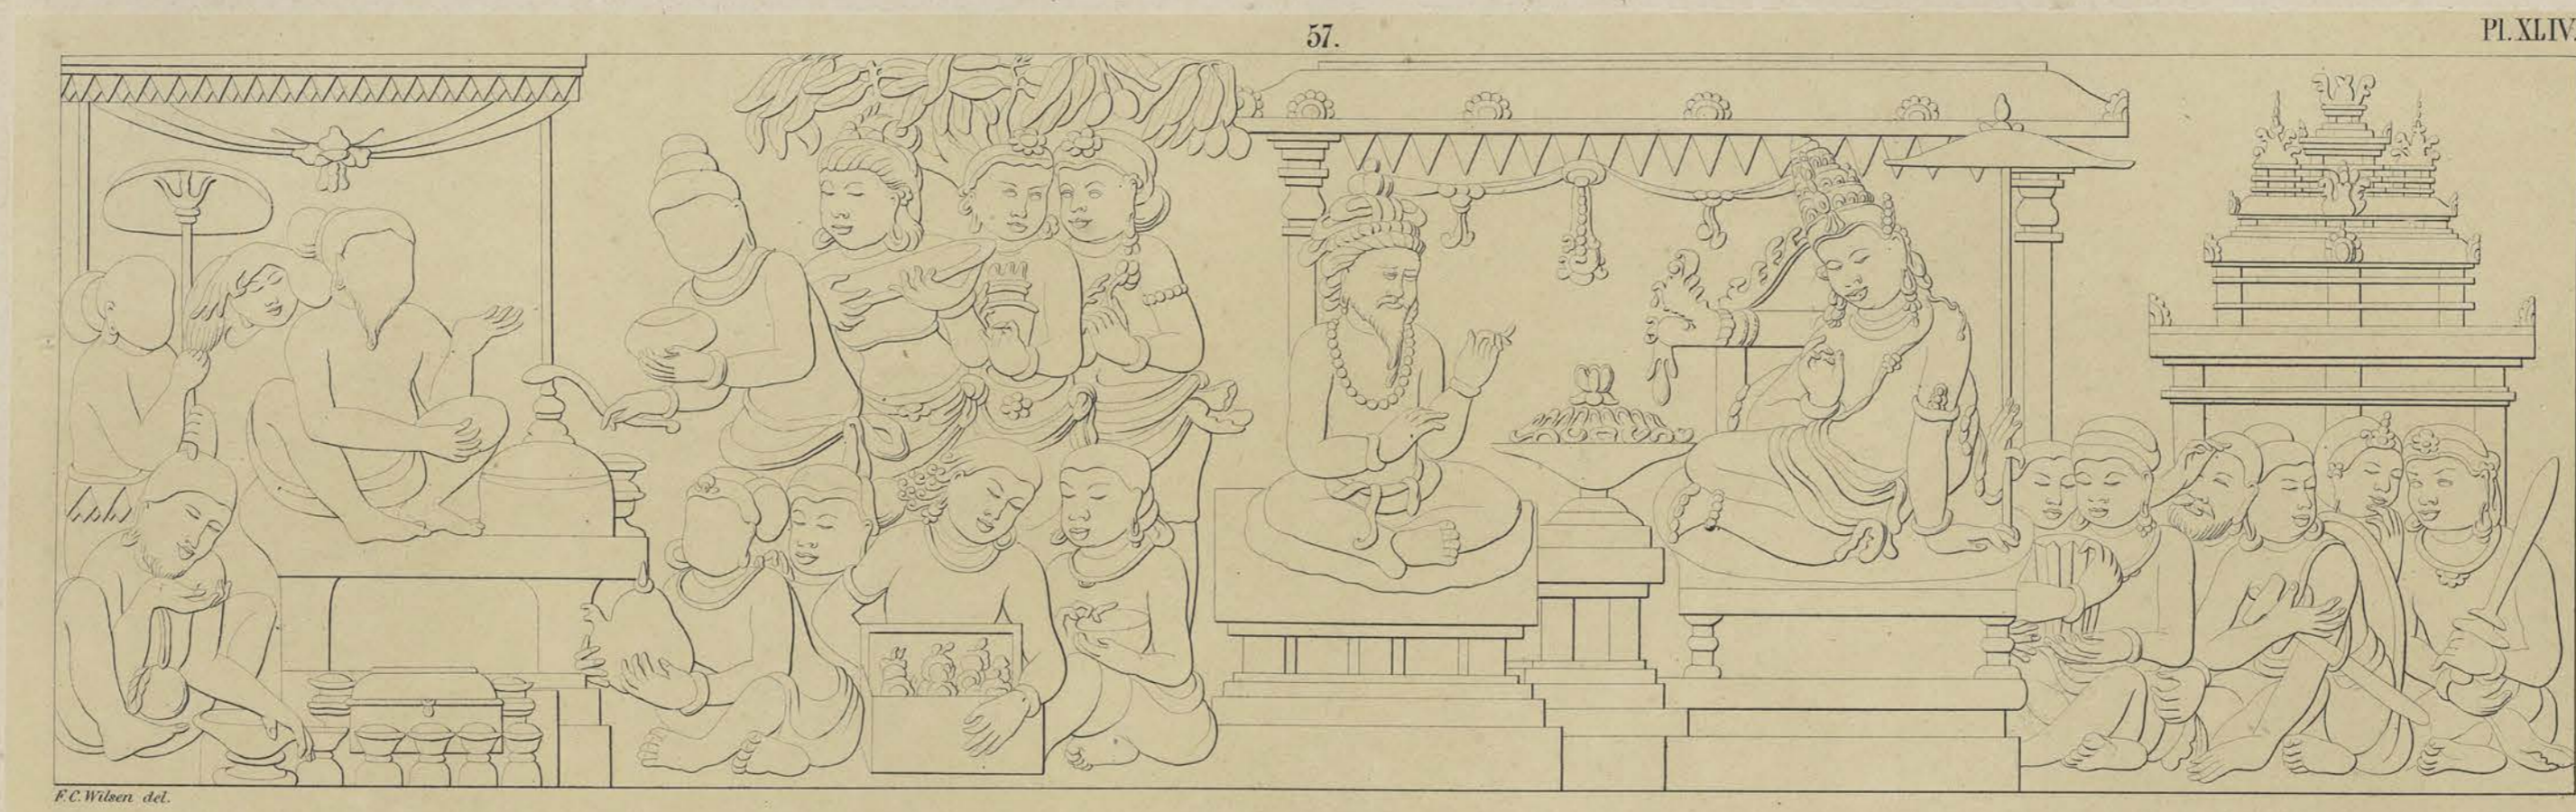 57.
Pl. XLIV.
F. C. Wilsen del.